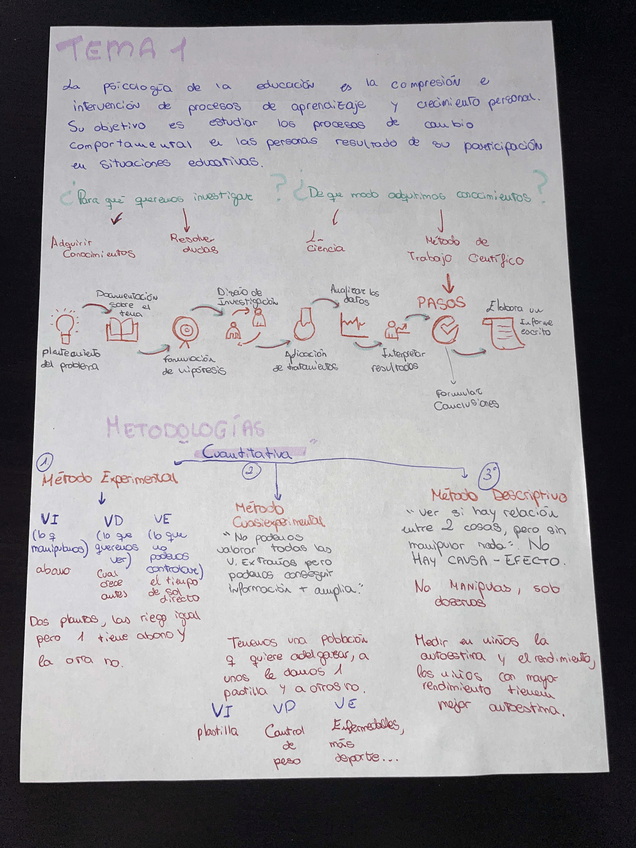 TEMA 1
La psicología de la educación es la compresión e
intervención de procesos de aprendizaje y crecimiento personal.
Su objetivo es estudiar los procesos de cambio
comportamental en las personas resultado de su participación
en situaciones educativas.
¿Para qué queremos investigar? ¿De que modo adquirimos conocimientos?
Adquirir
Conocimientos
Resolver
dudas
La
Ciencia
Método de
Trabajo Científico
PASOS
Planteamiento
del problema
Documentación
sobre el
tema
Formulación
de hipótesis
Diseño de
Investigación
Aplicación
de tratamientos
Analizar los
datos
Interpretar
resultados
Formular
Conclusiones
Elabora un
Informe
escrito
METODOLOGÍAS
"Cuantitativa"
1
Método Experimental
VI
(lo q
manipulamos)
abono
VD
(lo que
queremos
ver)
Cual
crece
antes
VE
(lo que
no
podemos
controlar)
el tiempo
de sol
directo
Dos plantas, las riego igual
pero 1 tiene abono y
la otra no.
2
Método
Cuasiexperimental
"No podemos
valorar todas las
V. Extrañas pero
podemos conseguir
información + amplia."
Tenemos una población
q quiere adelgazar, a
unos le damos 1
pastilla y a otros no.
VI
plastilla
VD
Control
de
peso
VE
Enfermedades,
más
deporte...
3º
Método Descriptivo
"Ver si hay relación
entre 2 cosas, pero sin
manipular nada". No
HAY CAUSA - EFECTO.
No MANIPULAS, sob
Medir en niños la
autoestima y el rendimiento,
los niños con mayor
rendimiento tienen
mejor autoestima.